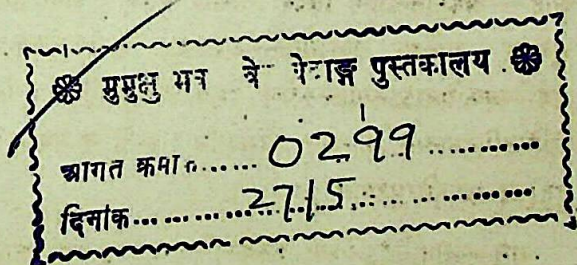 मुमुक्षु भव वे वेदाङ्ग पुस्तकालय
आगत क्रमांक...... 0299 ..........
दिनांक........... 2715 ..............